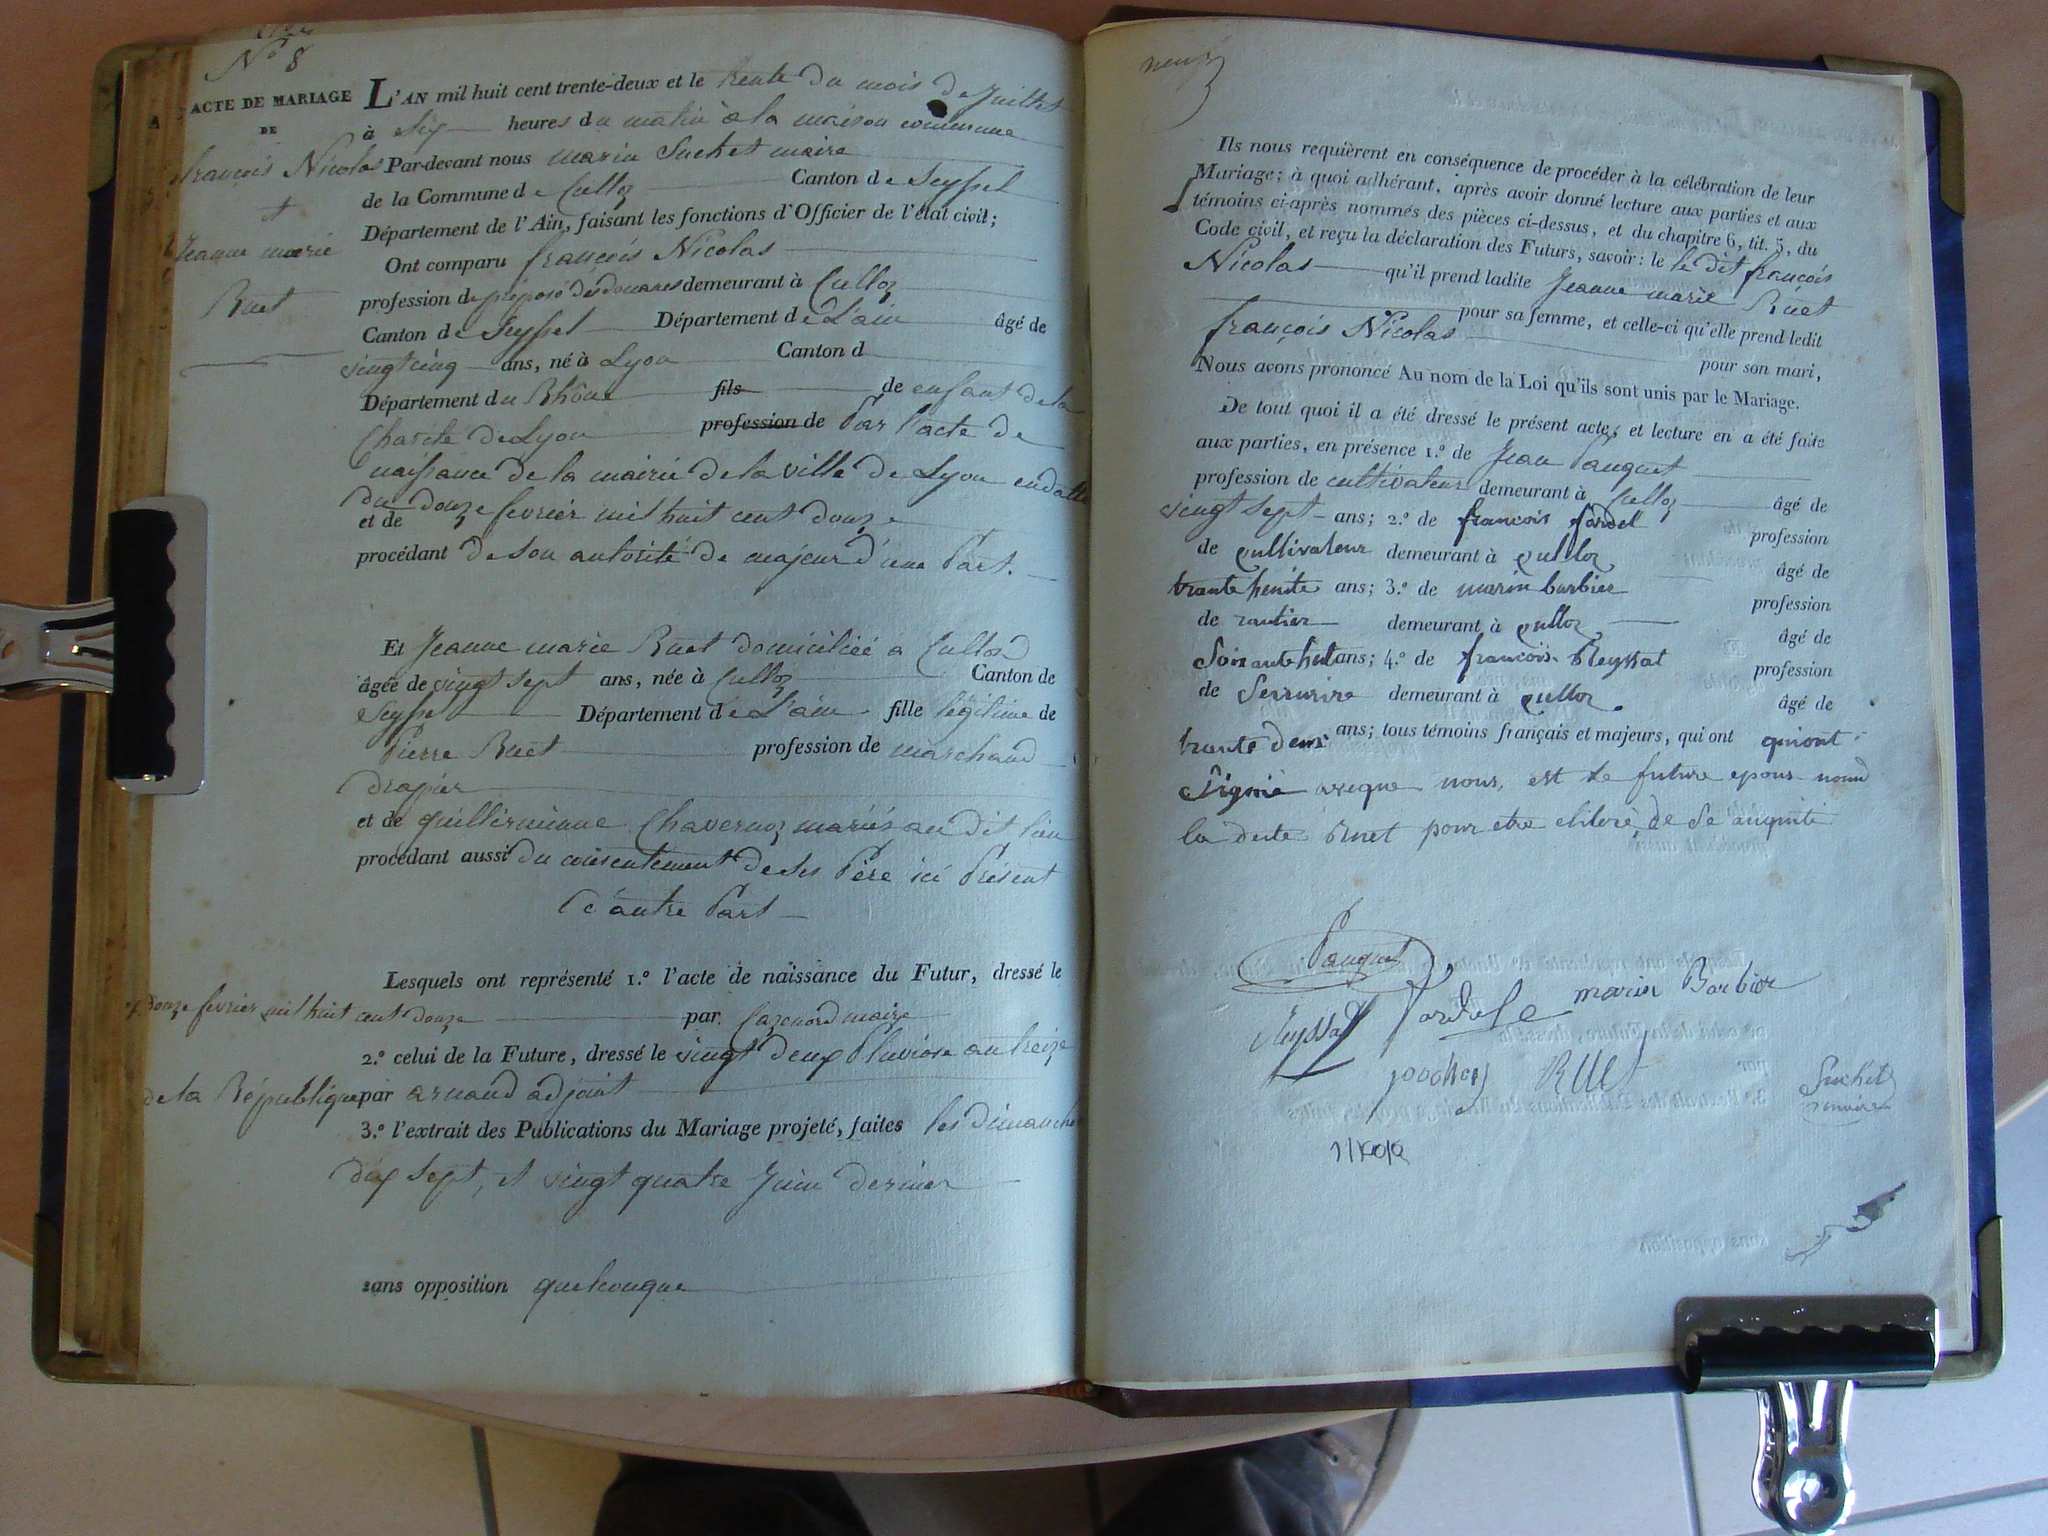 N° 8
ACTE DE MARIAGE
DE
françois Nicolas
et
Jeanne marie
Ruet
L'AN mil huit cent trente-deux et le trente du mois de Juillet
à Six heures du matin à la maison commune
Par-devant nous marin Suchet maire
de la Commune de Culloz Canton de Seyssel
Département de l'Ain, faisant les fonctions d'Officier de l'état civil;
Ont comparu françois Nicolas
profession de préposé des douanes demeurant à Culloz
Canton de Seyssel Département de L'ain âgé de
vingt cinq ans, né à Lyon Canton d
Département du Rhône fils de enfant de la
Charité de Lyon profession de Par l'acte de
naissance de la mairie de la ville de Lyon en datte
du douze fevrier mil huit cent douze
et de
procédant de son autorité de majeur d'une Part.
Et Jeanne marie Ruet domiciliée à Culloz
âgée de vingt sept ans, née à Culloz Canton de
Seyssel Département de L'ain fille légitime de
Pierre Ruet profession de marchand
drapier
et de guillerminne Chavernoz mariés au dit lieu
procédant aussi du consentement de ses Père ici Présent
d'autre Part
Lesquels ont représenté 1.° l'acte de naissance du Futur, dressé le
douze fevrier mil huit cent douze par Cazenord maire
2.° celui de la Future, dressé le vingt deux Pluviose an treize
de la République par arnaud adjoint
3.° l'extrait des Publications du Mariage projeté, faites les dimanches
dix sept, et vingt quatre Juin dernier
sans opposition quelconque
neuf
Ils nous requièrent en conséquence de procéder à la célébration de leur
Mariage; à quoi adhérant, après avoir donné lecture aux parties et aux
témoins ci-après nommés des pièces ci-dessus, et du chapitre 6, tit. 5, du
Code civil, et reçu la déclaration des Futurs, savoir: le le dit françois
Nicolas qu'il prend ladite Jeanne marie Ruet
pour sa femme, et celle-ci qu'elle prend ledit
françois Nicolas pour son mari,
Nous avons prononcé Au nom de la Loi qu'ils sont unis par le Mariage.
De tout quoi il a été dressé le présent acte, et lecture en a été faite
aux parties, en présence 1.° de Jean Pauquet
profession de cultivateur demeurant à Culloz âgé de
vingt sept ans; 2.° de francois fardel profession
de cultivateur demeurant à culloz âgé de
trante huite ans; 3.° de marin barbier profession
de rantier demeurant à culloz âgé de
Soixante huit ans; 4.° de francois Reyssat profession
de Serrurire demeurant à culloz âgé de
trante deux ans; tous témoins français et majeurs, qui ont qui ont
Signié aveque nous, est le future epous nomd
la dite Ruet pour etre
Pauquet
Reyssat fardel marin Barbier
Ruet
Suchet
maire